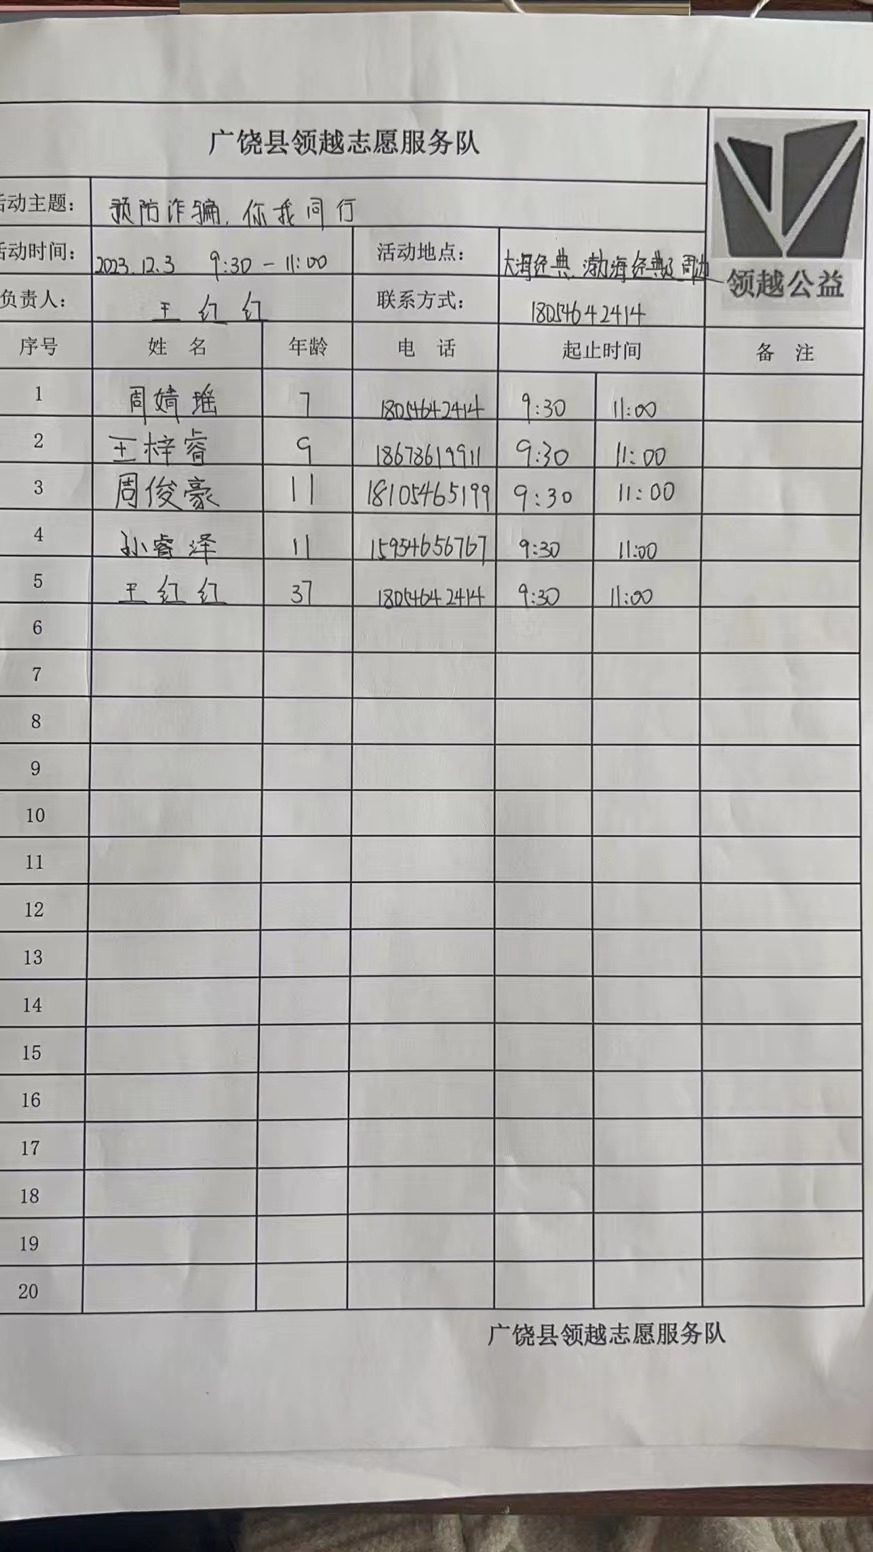 广饶县领越志愿服务队
领越公益
活动主题： 预防诈骗，你我同行
活动时间： 2023.12.3 9:30－11:00 活动地点： 大海经典、渤海经典及周边
负责人： 王红红 联系方式： 18054642414
序号 姓 名 年龄 电 话 起止时间 备 注
1 周婧瑶 7 18054642414 9:30 11:00
2 王梓睿 9 18678619911 9:30 11:00
3 周俊豪 11 18105465199 9:30 11:00
4 孙睿泽 11 15954656767 9:30 11:00
5 王红红 37 18054642414 9:30 11:00
6
7
8
9
10
11
12
13
14
15
16
17
18
19
20
广饶县领越志愿服务队